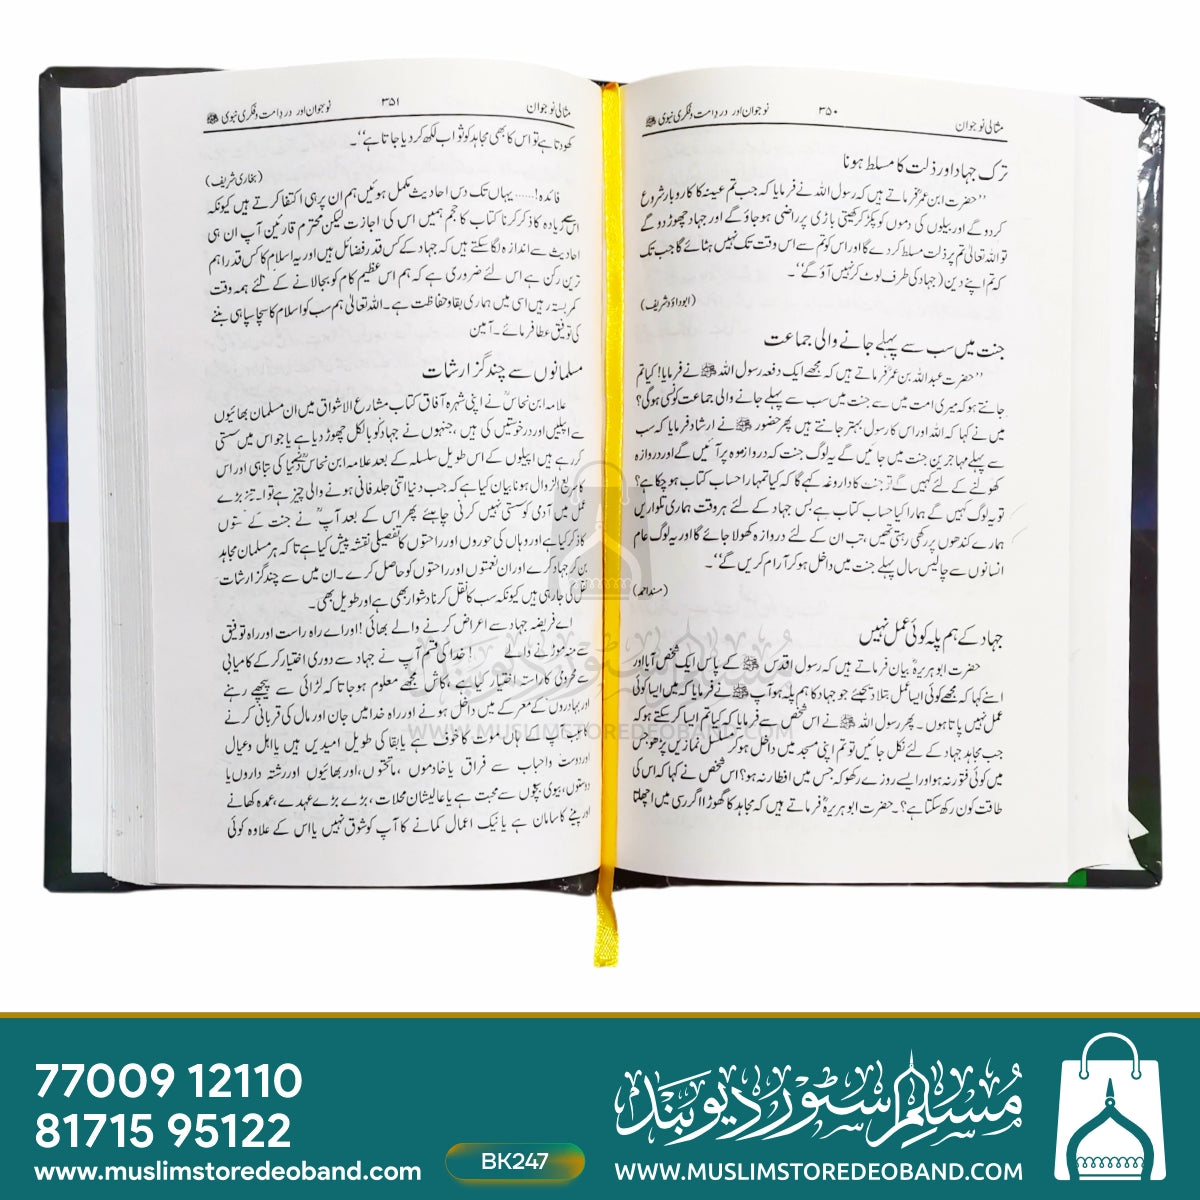 مثالی نوجوان ۳۵۰ نوجوان اور درد امت و فکری نبوی ﷺ
ترک جہاد اور ذلت کا مسلط ہونا
’’حضرت ابن عمرؓ فرماتے ہیں کہ رسول اللہ نے فرمایا کہ جب تم عینہ کا کاروبار شروع
کر دو گے اور بیلوں کی دموں کو پکڑ کر کھیتی باڑی پر راضی ہو جاؤ گے اور جہاد چھوڑ دو گے
تو اللہ تعالیٰ تم پر ذلت مسلط کر دے گا اور اس کو تم سے اس وقت تک نہیں ہٹائے گا جب تک
کہ تم اپنے دین (جہاد کی طرف لوٹ کر نہیں آؤ گے‘‘۔
(ابوداؤد شریف)
جنت میں سب سے پہلے جانے والی جماعت
’’حضرت عبداللہ بن عمرؓ فرماتے ہیں کہ مجھے ایک دفعہ رسول اللہ ﷺ نے فرمایا! کیا تم
جانتے ہو کہ میری امت میں سے جنت میں سب سے پہلے جانے والی جماعت کونسی ہوگی؟
میں نے کہا کہ اللہ اور اس کا رسول بہتر جانتے ہیں پھر حضور ﷺ نے ارشاد فرمایا کہ سب
سے پہلے مہاجرین جنت میں جائیں گے یہ لوگ جنت کے دروازہ پر آئیں گے اور دروازہ
کھولنے کے لئے کہیں گے تو جنت کا داروغہ کہے گا کہ کیا تمہارا حساب کتاب ہو چکا ہے؟
تو یہ لوگ کہیں گے ہمارا کیا حساب کتاب ہے بس جہاد کے لئے ہر وقت ہماری تلواریں
ہمارے کندھوں پر رکھی رہتی تھیں، تب ان کے لئے دروازہ کھولا جائے گا اور یہ لوگ عام
انسانوں سے چالیس سال پہلے جنت میں داخل ہو کر آرام کریں گے‘‘۔
(مسند احمد)
جہاد کے ہم پلہ کوئی عمل نہیں
حضرت ابوہریرہؓ بیان فرماتے ہیں کہ رسول اقدس ﷺ کے پاس ایک شخص آیا اور
اسنے کہا کہ مجھے کوئی ایسا عمل بتلا دیجئے جو جہاد کا ہم پلہ ہو آپ ﷺ نے فرمایا کہ میں ایسا کوئی
عمل نہیں پاتا ہوں۔ پھر رسول اللہ ﷺ نے اس شخص سے فرمایا کہ کیا تم ایسا کر سکتے ہو کہ
جب مجاہد جہاد کے لئے نکل جائیں تو تم اپنی مسجد میں داخل ہو کر مسلسل نمازیں پڑھو بس
میں کوئی فتور نہ ہو اور ایسے روزے رکھو کہ جس میں افطار نہ ہو؟ اس شخص نے کہا کہ اس کی
طاقت کون رکھ سکتا ہے؟۔ حضرت ابوہریرہؓ فرماتے ہیں کہ مجاہد کا گھوڑا اگر رسی میں اچھلتا
مثالی نوجوان ۳۵۱ نوجوان اور درد امت و فکری نبوی ﷺ
کودتا ہے تو اس کا بھی مجاہد کو ثواب لکھ کر دیا جاتا ہے‘‘۔
(بخاری شریف)
فائدہ!..... یہاں تک دس احادیث مکمل ہوئیں ہم ان پر ہی اکتفا کرتے ہیں کیونکہ
اس سے زیادہ کا ذکر کرنا کتاب کا حجم ہمیں اس کی اجازت لیکن محترم قارئین آپ ان ہی
احادیث سے اندازہ لگا سکتے ہیں کہ جہاد کے کس قدر فضائل ہیں اور یہ اسلام کا کس قدر اہم
ترین رکن ہے اس لئے ضروری ہے کہ ہم اس عظیم کام کو بجالانے کے لئے ہمہ وقت
کمر بستہ رہیں اسی میں ہماری بقا و حفاظت ہے۔ اللہ تعالیٰ ہم سب کو اسلام کا سچا سپاہی بننے
کی توفیق عطا فرمائے۔ آمین
مسلمانوں سے چند گزارشات
علامہ ابن نحاسؒ نے اپنی شہرہ آفاق کتاب مشارع الاشواق میں ان مسلمان بھائیوں
سے اپلیں اور درخواستیں کی ہیں، جنہوں نے جہاد کو بالکل چھوڑ دیا ہے یا جو اس میں سستی
کر رہے ہیں اپیلوں کے اس طویل سلسلہ کے بعد علامہ ابن نحاسؒ نے دنیا کی تباہی اور اس
کا سریع الزوال ہونا، بیان کیا ہے کہ جب دنیا اتنی جلد فانی ہونے والی چیز ہے تو اسے چیز بڑے
عمل میں آدمی کو سستی نہیں کرنی چاہئے پھر اس کے بعد آپؒ نے جنت کے ستوں
کا ذکر کیا ہے اور وہاں کی حوروں اور راحتوں کا تفصیلی نقشہ پیش کیا ہے تا کہ ہر مسلمان مجاہد
بن کر جہاد کرے اور ان نعمتوں اور راحتوں کو حاصل کرے۔ ان میں سے چند گزارشات
نقل کی جا رہی ہیں کیونکہ سب کا نقل کرنا دشوار بھی ہے اور طویل بھی۔
اے فریضہ جہاد سے اعراض کرنے والے بھائی! اور اے راہ راست اور راہ توفیق
سے منہ موڑنے والے! خدا کی قسم آپ نے جہاد سے دوری اختیار کر کے کامیابی
سے محرومی کا راستہ اختیار کیا ہے، کاش مجھے معلوم ہو جاتا کہ لڑائی سے پیچھے رہنے
اور بہادروں کے معرکے میں داخل ہونے اور راہ خدا میں جان اور مال کی قربانی کرنے
کا سبب آپ کے ہاں، موت کا خوف ہے یا بقا کی طویل امیدیں ہیں یا اہل و عیال
اور دوست و احباب سے فراق یا خادموں، ماتحتوں، اور بھائیوں اور رشتہ داروں یا
دوستوں، بیوی بچوں سے محبت ہے یا عالیشان محلات، بڑے بڑے عہدے، عمدہ کھانے
اور پینے کا سامان ہے یا نیک اعمال کمانے کا آپ کو شوق نہیں یا اس کے علاوہ کوئی
مسلم سٹور دیوبند
WWW.MUSLIMSTOREDEOBAND.COM
77009 12110
81715 95122
www.muslimstoredeoband.com
BK247
مسلم سٹور دیوبند
WWW.MUSLIMSTOREDEOBAND.COM